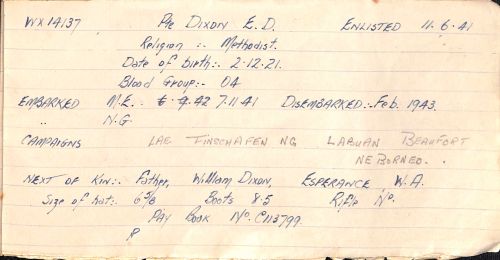 WX14137 Pte DIXON E. D. ENLISTED 11.6.41
Religion :- Methodist.
Date of birth:. 2.12.21.
Blood Group:- O4
EMBARKED M.E. :- 7.11.41 DISEMBARKED:-Feb. 1943.
" N.G.
CAMPAIGNS LAE FINSCHAFEN NG LABUAN BEAUFORT
NE BORNEO.
NEXT OF KIN:. Father, William DIXON, ESPERANCE W.A.
Size of hat:. 6⅞ Boots 8.5 Rifle No.
PAY BOOK No. C113799.
R